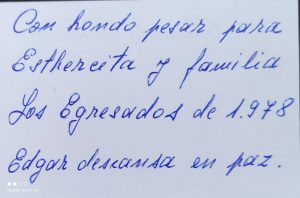 Con hondo pesar para
Esthercita y familia
Los Egresados de 1.978
Edgar descansa en paz.